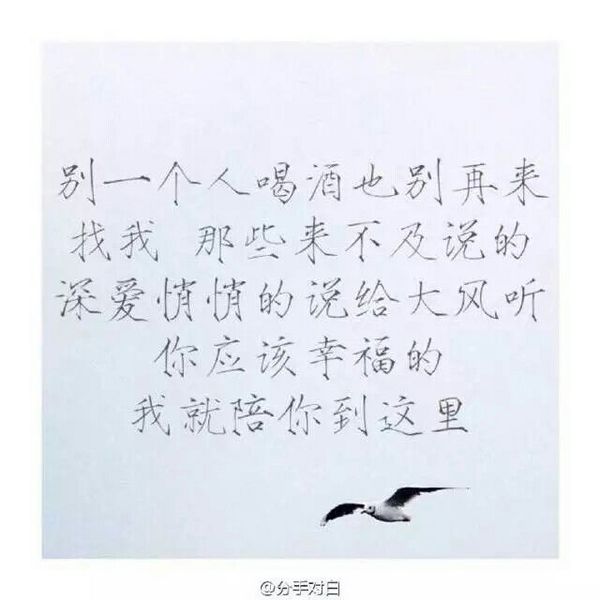 别一个人喝酒也别再来
找我 那些来不及说的
深爱悄悄的说给大风听
你应该幸福的
我就陪你到这里
@分手对白